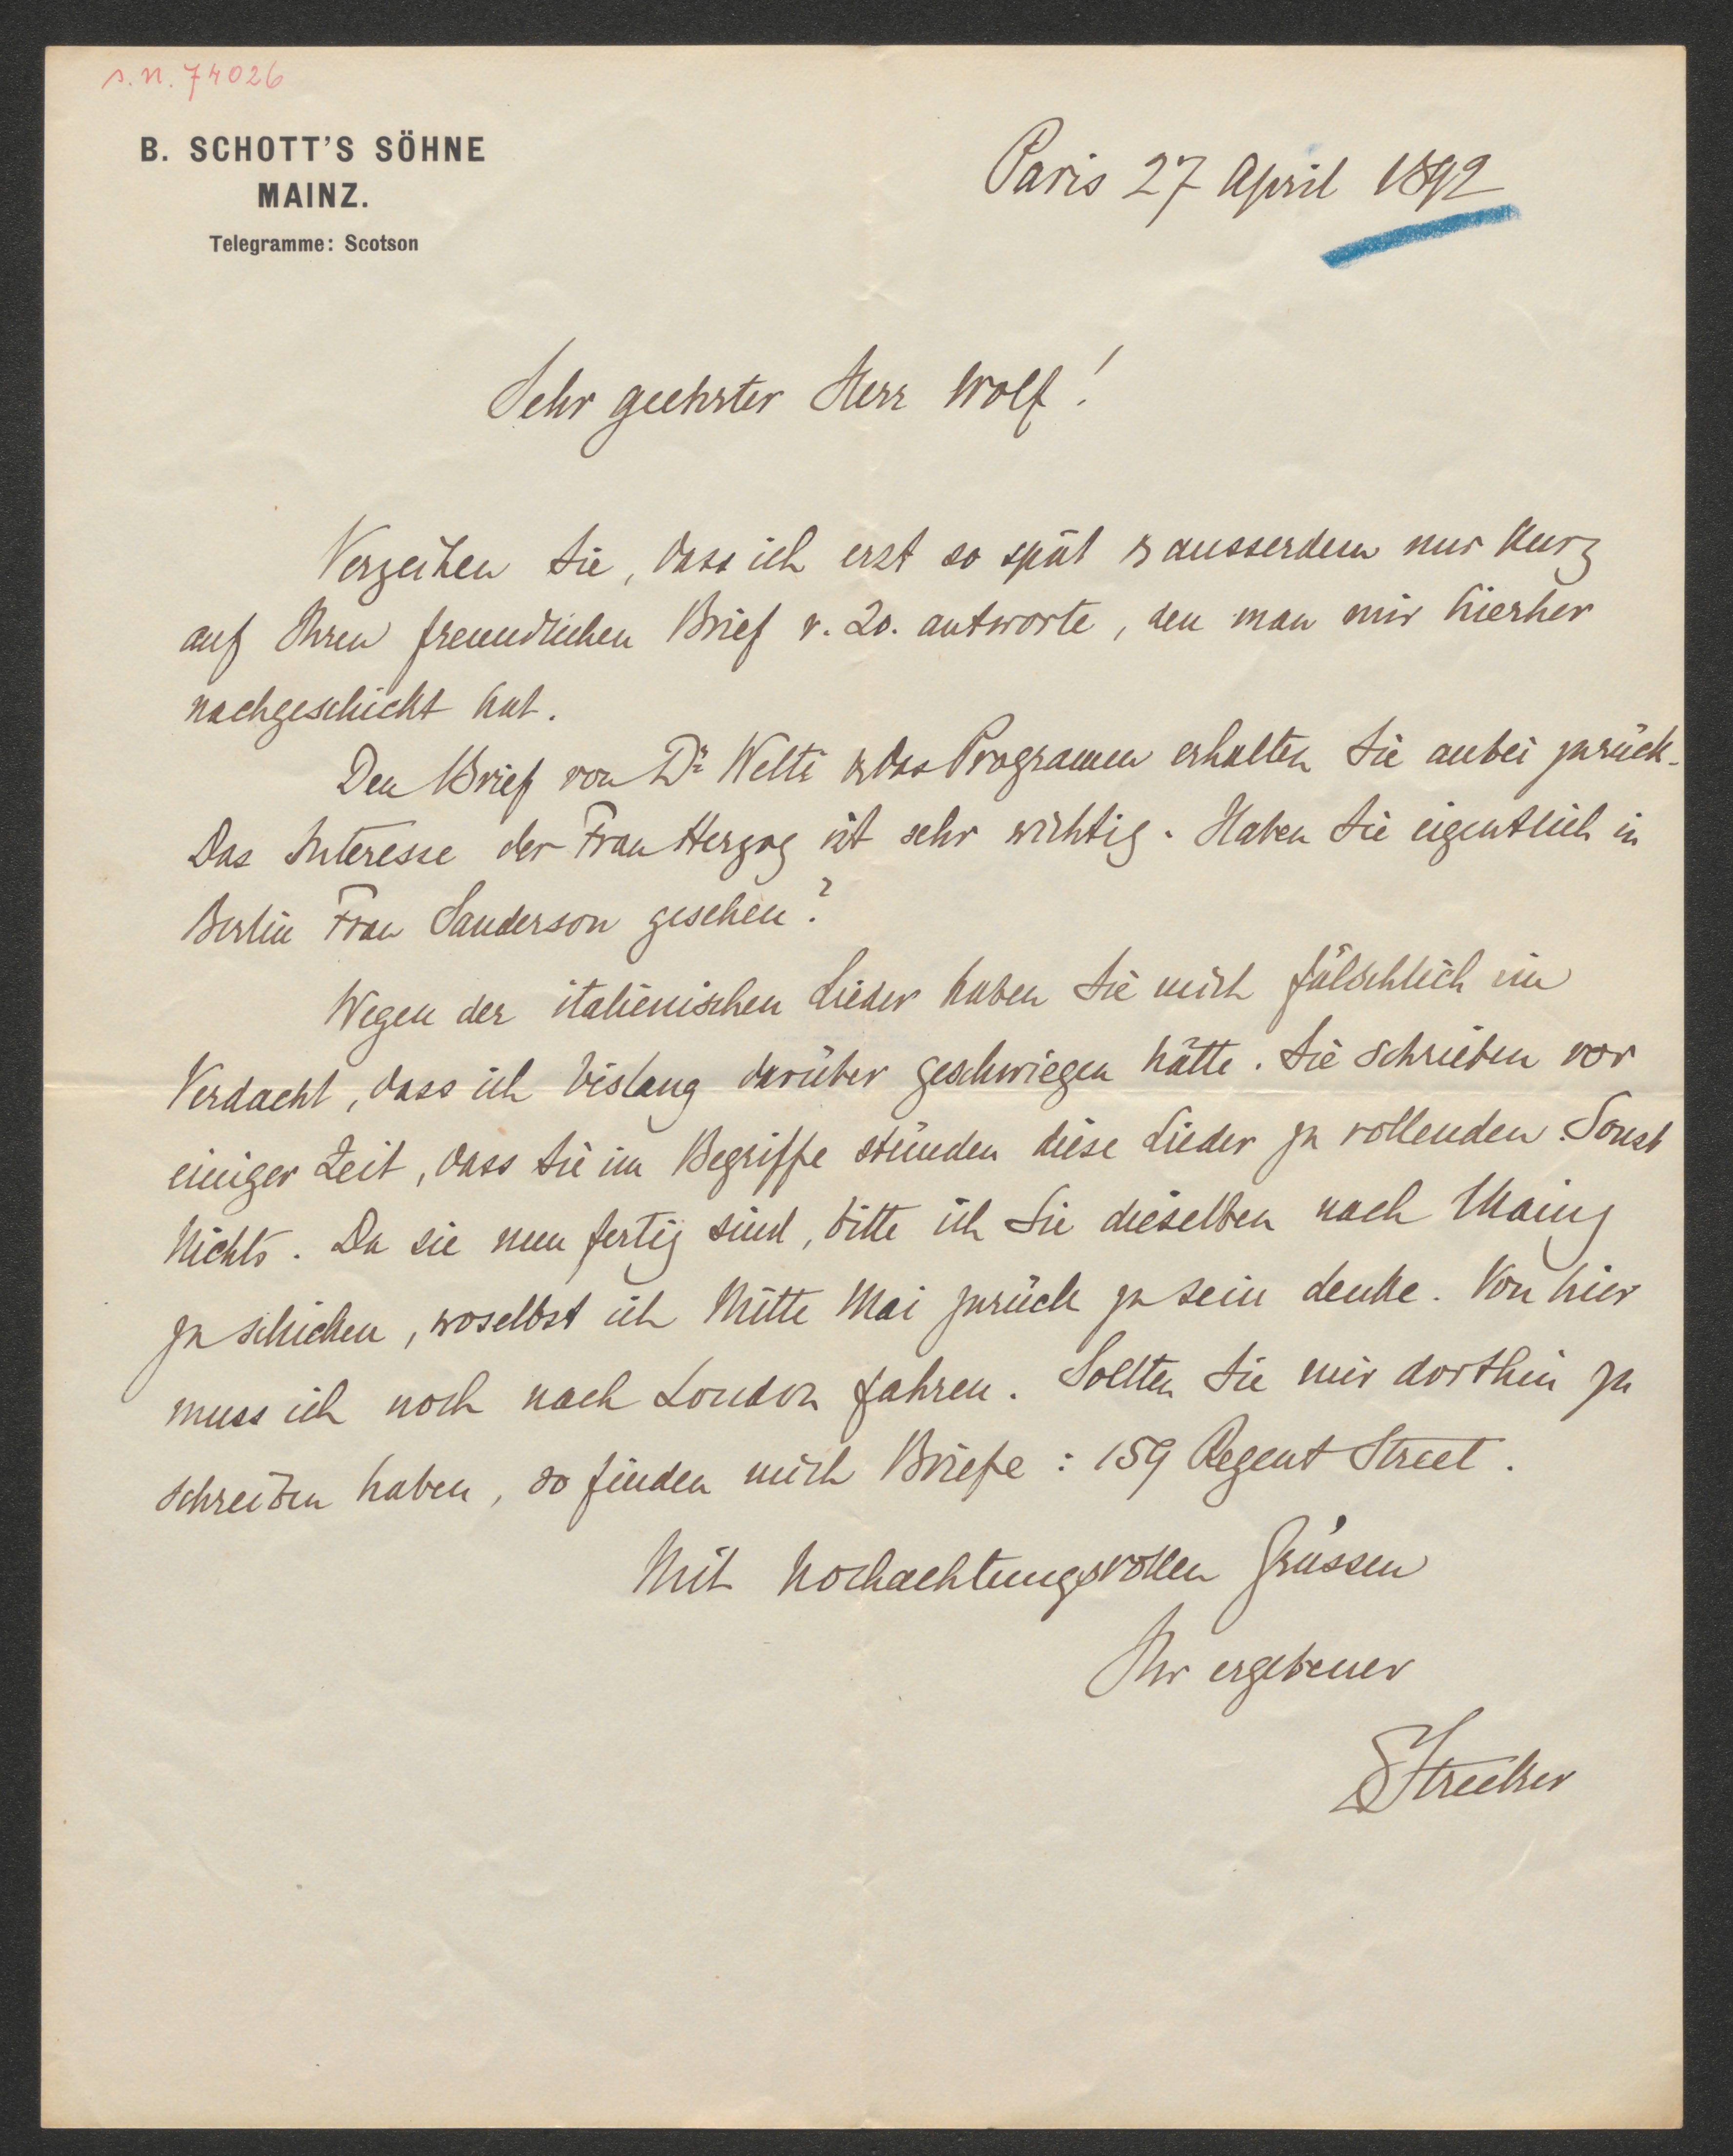 s.n. 74026
B. SCHOTT'S SÖHNE
MAINZ.
Telegramme: Scotson
Paris 27 April 1892
Sehr geehrter Herr Wolf!
Verzeihen Sie, dass ich erst so spät & ausserdem nur kurz
auf Ihren freundlichen Brief v. 20. antworte, den man mir hierher
nachgeschickt hat.
Den Brief von Dr Welti & das Programm erhalten Sie anbei zurück.
Das Interesse der Frau Herzog ist sehr wichtig. Haben Sie eigentlich in
Berlin Frau Sanderson gesehen?
Wegen der italienischen Lieder haben Sie mich fälschlich im
Verdacht, dass ich bislang darüber geschwiegen hätte. Sie schrieben vor
einiger Zeit, dass Sie im Begriffe stünden diese Lieder zu vollenden. Sonst
Nichts. Da sie nun fertig sind, bitte ich Sie dieselben nach Mainz
zu schicken, woselbst ich Mitte Mai zurück zu sein denke. Von hier
muss ich noch nach London fahren. Sollten Sie mir dorthin zu
schreiben haben, so finden mich Briefe: 159 Regent Street.
Mit hochachtungsvollen Grüssen
Ihr ergebener
Strecker